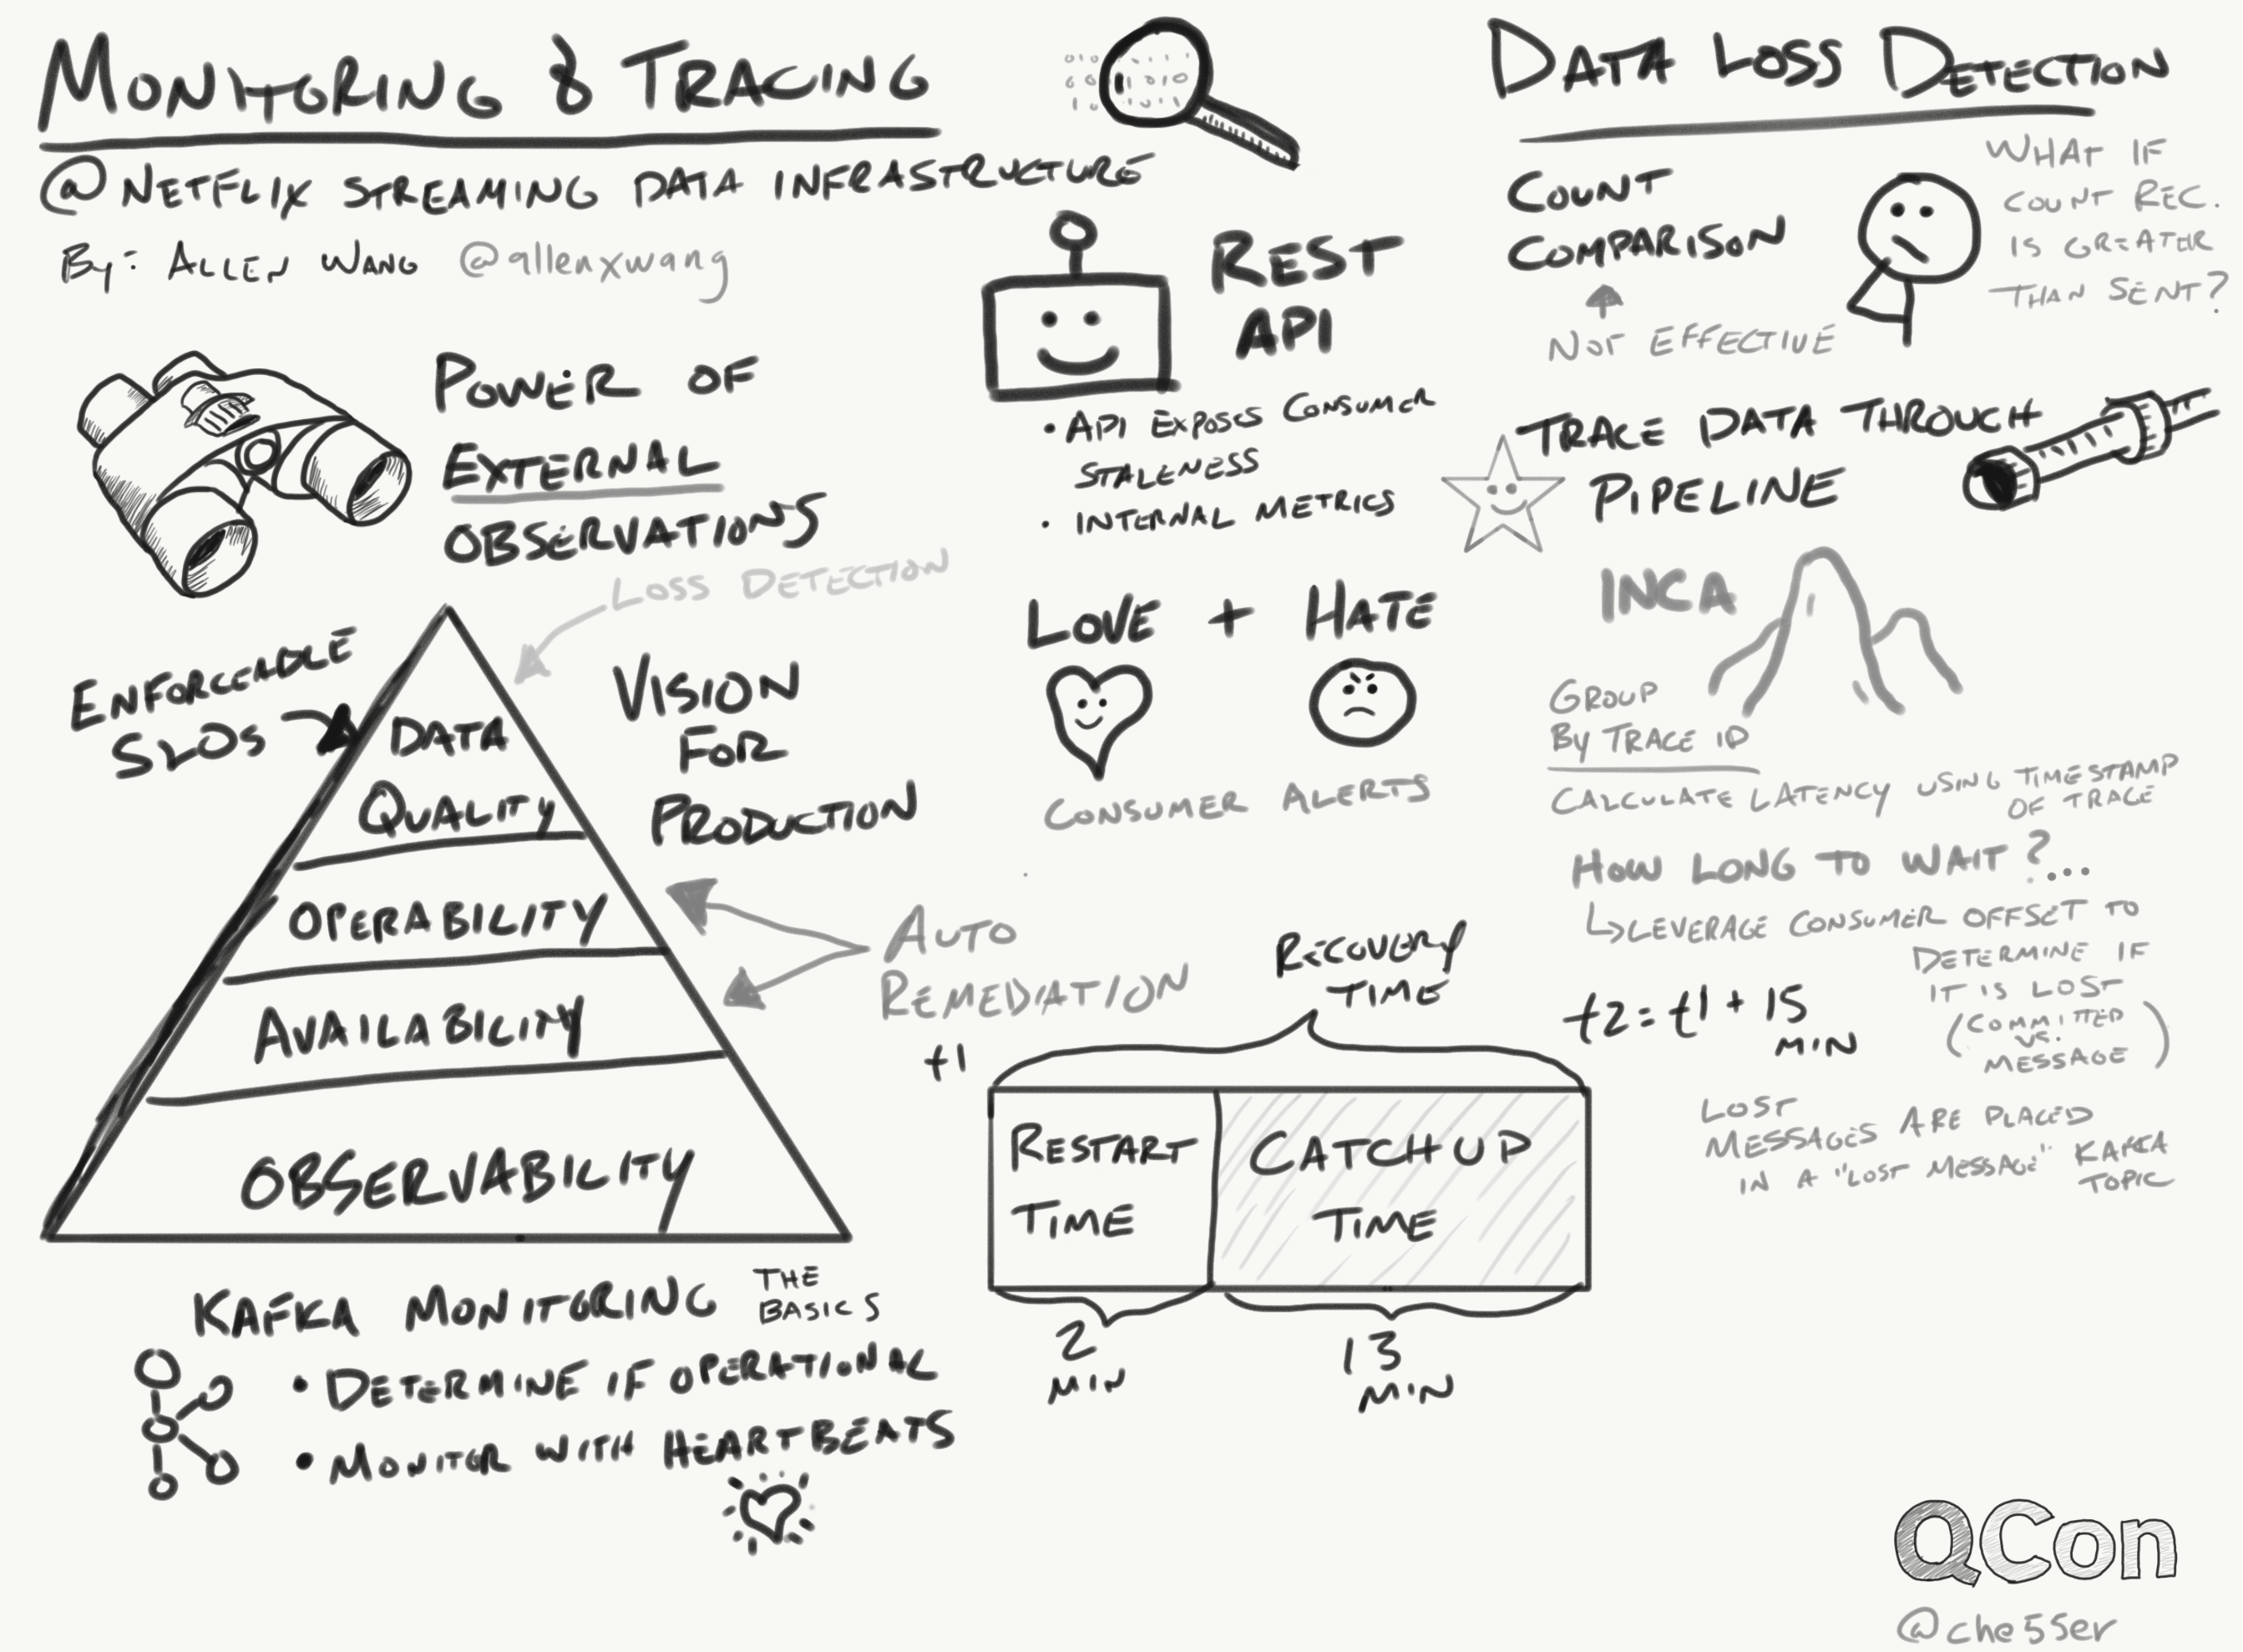 MONITORING & TRACING
@NETFLIX STREAMING DATA INFRASTRUCTURE
By: ALLEN WANG @allenxwang
POWER OF
EXTERNAL
OBSERVATIONS
LOSS DETECTION
ENFORCEABLE
SLOs
DATA
QUALITY
OPERABILITY
AVAILABILITY
OBSERVABILITY
VISION
FOR
PRODUCTION
AUTO
REMEDIATION
KAFKA MONITORING THE
BASICS
• DETERMINE IF OPERATIONAL
• MONITOR WITH HEARTBEATS
REST
API
• API EXPOSES CONSUMER
STALENESS
• INTERNAL METRICS
LOVE + HATE
CONSUMER ALERTS
RECOVERY
TIME
t1
RESTART
TIME
CATCH UP
TIME
2
MIN
13
MIN
t2 = t1 + 15
MIN
DATA LOSS DETECTION
COUNT
COMPARISON
NOT EFFECTIVE
WHAT IF
COUNT REC.
IS GREATER
THAN SENT?
TRACE DATA THROUGH
PIPELINE
INCA
GROUP
BY TRACE ID
CALCULATE LATENCY USING TIMESTAMP
OF TRACE
HOW LONG TO WAIT?...
LEVERAGE CONSUMER OFFSET TO
DETERMINE IF
IT IS LOST
(COMMITTED
VS.
MESSAGE)
LOST
MESSAGES ARE PLACED
IN A "LOST MESSAGE" KAFKA
TOPIC
QCon
@che55er